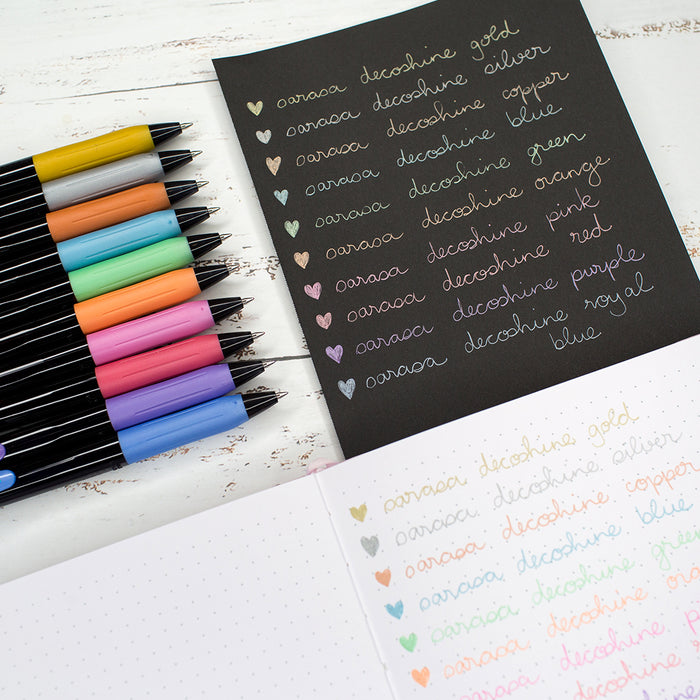 sarasa decoshine gold
sarasa decoshine silver
sarasa decoshine copper
sarasa decoshine blue
sarasa decoshine green
sarasa decoshine orange
sarasa decoshine pink
sarasa decoshine red
sarasa decoshine purple
sarasa decoshine royal
blue
sarasa decoshine gold
sarasa decoshine silver
sarasa decoshine copper
sarasa decoshine blue
sarasa decoshine green
sarasa decoshine
sarasa decoshine
sarasa decoshine